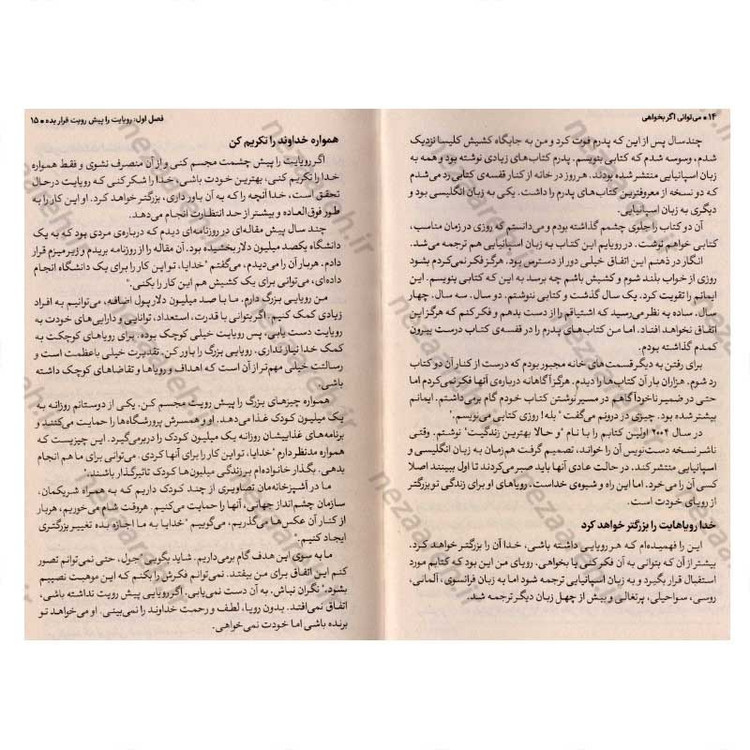 ۱۴ • می‌توانی اگر بخواهی
چند سال پس از این که پدرم فوت کرد و من به جایگاه کشیش کلیسا نزدیک
شدم، وسوسه شدم که کتابی بنویسم. پدرم کتاب‌های زیادی نوشته بود و همه به
زبان اسپانیایی منتشر شده بودند. هر روز در خانه از کنار قفسه‌ی کتابی رد می‌شدم
که دو نسخه از معروف‌ترین کتاب‌های پدرم را داشت. یکی به زبان انگلیسی بود و
دیگری به زبان اسپانیایی.
آن دو کتاب را جلوی چشمم گذاشته بودم و می‌دانستم که روزی در زمان مناسب،
کتابی خواهم نوشت. در رویایم این کتاب به زبان اسپانیایی هم ترجمه می‌شد.
انگار در ذهنم این اتفاق خیلی دور از دسترس بود. هرگز فکر نمی‌کردم بشود
روزی از خواب بلند شوم و کشیش باشم چه برسد به این که کتابی بنویسم. این
ایمانم را تقویت کرد. یک سال گذشت و کتابی ننوشتم. دو سال. سه سال. چهار
سال. ساده به نظر می‌رسید که اشتیاقم را از دست بدهم و فکر کنم که هرگز این
اتفاق نخواهد افتاد. اما من کتاب‌های پدرم را در قفسه‌ی کتاب درست بیرون
کمدم گذاشته بودم.
برای رفتن به دیگر قسمت‌های خانه مجبور بودم که درست از کنار آن دو کتاب
رد شوم. هزاران بار آن کتاب‌ها را دیدم. هرگز آگاهانه درباره‌ی آنها فکر نمی‌کردم اما
حتی در ضمیر ناخودآگاهم در مسیر نوشتن کتاب خودم گام برمی‌داشتم. ایمانم
بیشتر شده بود. چیزی در درونم می‌گفت "بله! روزی کتابی می‌نویسم."
در سال ۲۰۰۴ اولین کتابم را با نام "و حالا بهترین زندگیت" نوشتم. وقتی
ناشر نسخه دست‌نویس آن را خواند، تصمیم گرفت همزمان به زبان انگلیسی و
اسپانیایی منتشر کند. در حالت عادی آنها باید صبر می‌کردند تا اول ببینند اصلا
کسی آن را می‌خرد. اما این راه و شیوه‌ی خداست. رویاهای او برای زندگی تو بزرگتر
از رویای خودت است.
خدا رویاهایت را بزرگتر خواهد کرد
این را فهمیده‌ام که هر رویایی داشته باشی، خدا آن را بزرگتر خواهد کرد.
بیشتر از آن که بتوانی به آن فکر کنی یا بخواهی. رویای من این بود که کتابم مورد
استقبال قرار بگیرد و به زبان اسپانیایی ترجمه شود اما به زبان فرانسوی، آلمانی،
روسی، سواحیلی، پرتغالی و بیش از چهل زبان دیگر ترجمه شد.
فصل اول: رویایت را پیش رویت قرار بده • ۱۵
همواره خداوند را تکریم کن
اگر رویایت را پیش چشمت مجسم کنی و از آن منصرف نشوی و فقط همواره
خدا را تکریم کنی، بهترین خودت باشی، خدا را شکر کنی که رویایت درحال
تحقق است، خدا آنچه را که به آن باور داری، بزرگتر خواهد کرد. او این کار را به
طور فوق‌العاده و بیشتر از حد انتظارت انجام می‌دهد.
چند سال پیش مقاله‌ای در روزنامه‌ای دیدم که درباره‌ی مردی بود که به یک
دانشگاه یکصد میلیون دلار بخشیده بود. آن مقاله را از روزنامه بریدم و زیر میزم قرار
دادم. هر بار آن را می‌دیدم، می‌گفتم "خدایا، تو این کار را برای یک دانشگاه انجام
داده‌ای، می‌توانی برای یک کشیش هم این کار را بکنی."
من رویایی بزرگ دارم. ما با صد میلیون دلار پول اضافه، می‌توانیم به افراد
زیادی کمک کنیم. اگر بتوانی با قدرت، استعداد، توانایی و دارایی‌های خودت به
رویایت دست یابی، پس رویایت خیلی کوچک بوده. برای رویاهای کوچکت به
کمک خدا نیاز نداری. رویایی بزرگ را باور کن. تقدیرت خیلی باعظمت است و
رسالتت خیلی مهم‌تر از آن است که اهداف و رویاها و تقاضاهای کوچک داشته
باشی.
همواره چیزهای بزرگ را پیش رویت مجسم کن. یکی از دوستانم روزانه به
یک میلیون کودک غذا می‌دهد. او و همسرش پرورشگاه‌ها را حمایت می‌کنند و
برنامه‌های غذاییشان روزانه یک میلیون کودک را دربرمی‌گیرد. این چیزیست که
همواره مدنظر دارم "خدایا، تو این کار را برای آنها کردی. می‌توانی برای ما هم انجام
بدهی. بگذار خانواده‌ام بر زندگی میلیون‌ها کودک تاثیرگذار باشند."
ما در آشپزخانه‌مان تصاویری از چند کودک داریم که به همراه شریکمان،
سازمان چشم‌انداز جهانی، آنها را حمایت می‌کنیم. هر وقت شام می‌خوریم، هر بار
از کنار آن عکس‌ها می‌گذریم، می‌گوییم "خدایا به ما اجازه بده تغییر بزرگتری
ایجاد کنیم."
ما به سوی این هدف گام برمی‌داریم. شاید بگویی "جول، حتی نمی‌توانم تصور
کنم این اتفاق برای من بیفتد. نمی‌توانم فکرش را بکنم که این موهبت نصیبم
بشود." نگران نباش. به آن دست نمی‌یابی. اگر رویایی پیش رویت نداشته باشی،
اتفاق نمی‌افتد. بدون رویا، لطف و رحمت خداوند را نمی‌بینی. او می‌خواهد تو
برنده باشی اما خودت نمی‌خواهی.